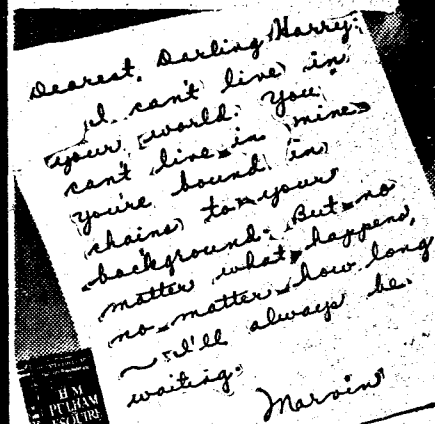 Dearest, Darling Harry:
I can't live in
your world. You
can't live in mine
You're bound in
chains to your
background. But no
matter what happens,
no matter how long
~ I'll always be
waiting.
Marvin
H.M.
PULHAM
ESQUIRE